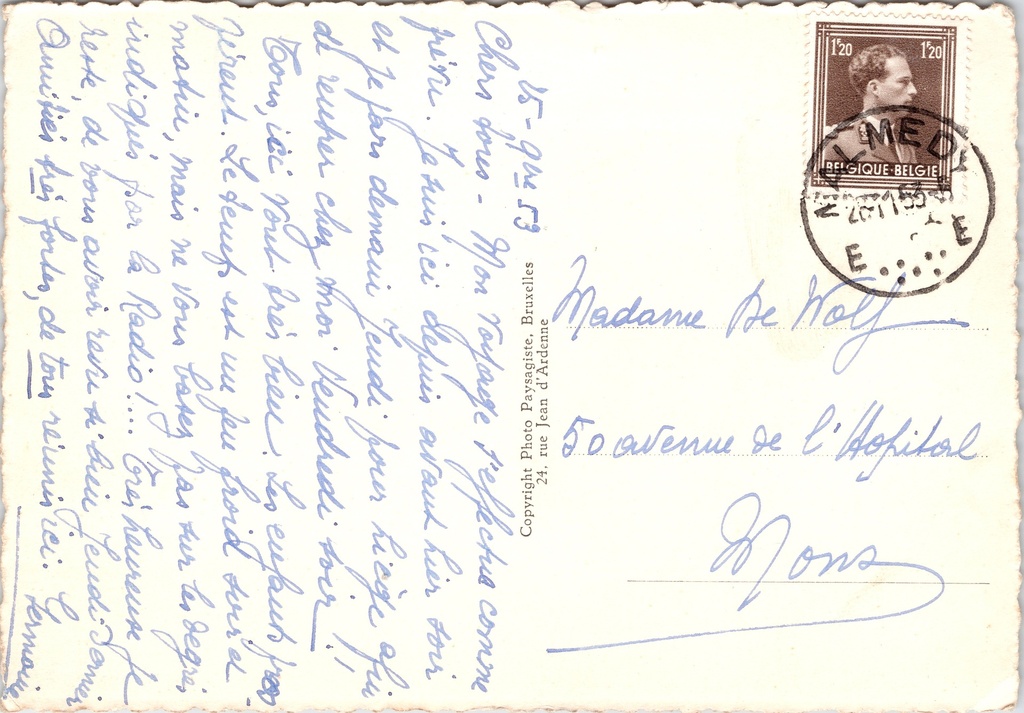 25-9bre 53
Chers vous - Mon voyage s'effectua comme
prévu. Je suis ici depuis avant hier soir
et je pars demain Jeudi pour Liège afin
de rentrer chez moi Vendredi soir !
Tous, ici vont très bien. Les enfants pros
pèrent. Le temps est un peu froid soir &
matin, mais ne vous basez pas sur les degrés
indiqués par la Radio !... Très heureuse je
reste, de vous avoir revu si bien Jeudi dernier
Amitiés très fortes, de tous réunis ici.
Germaine
Copyright Photo Paysagiste, Bruxelles
24, rue Jean d'Ardenne
1F20 1F20
BELGIQUE·BELGIE
MALMEDY
E E
Madame De Wolf
50 avenue de l'Hôpital
Mons